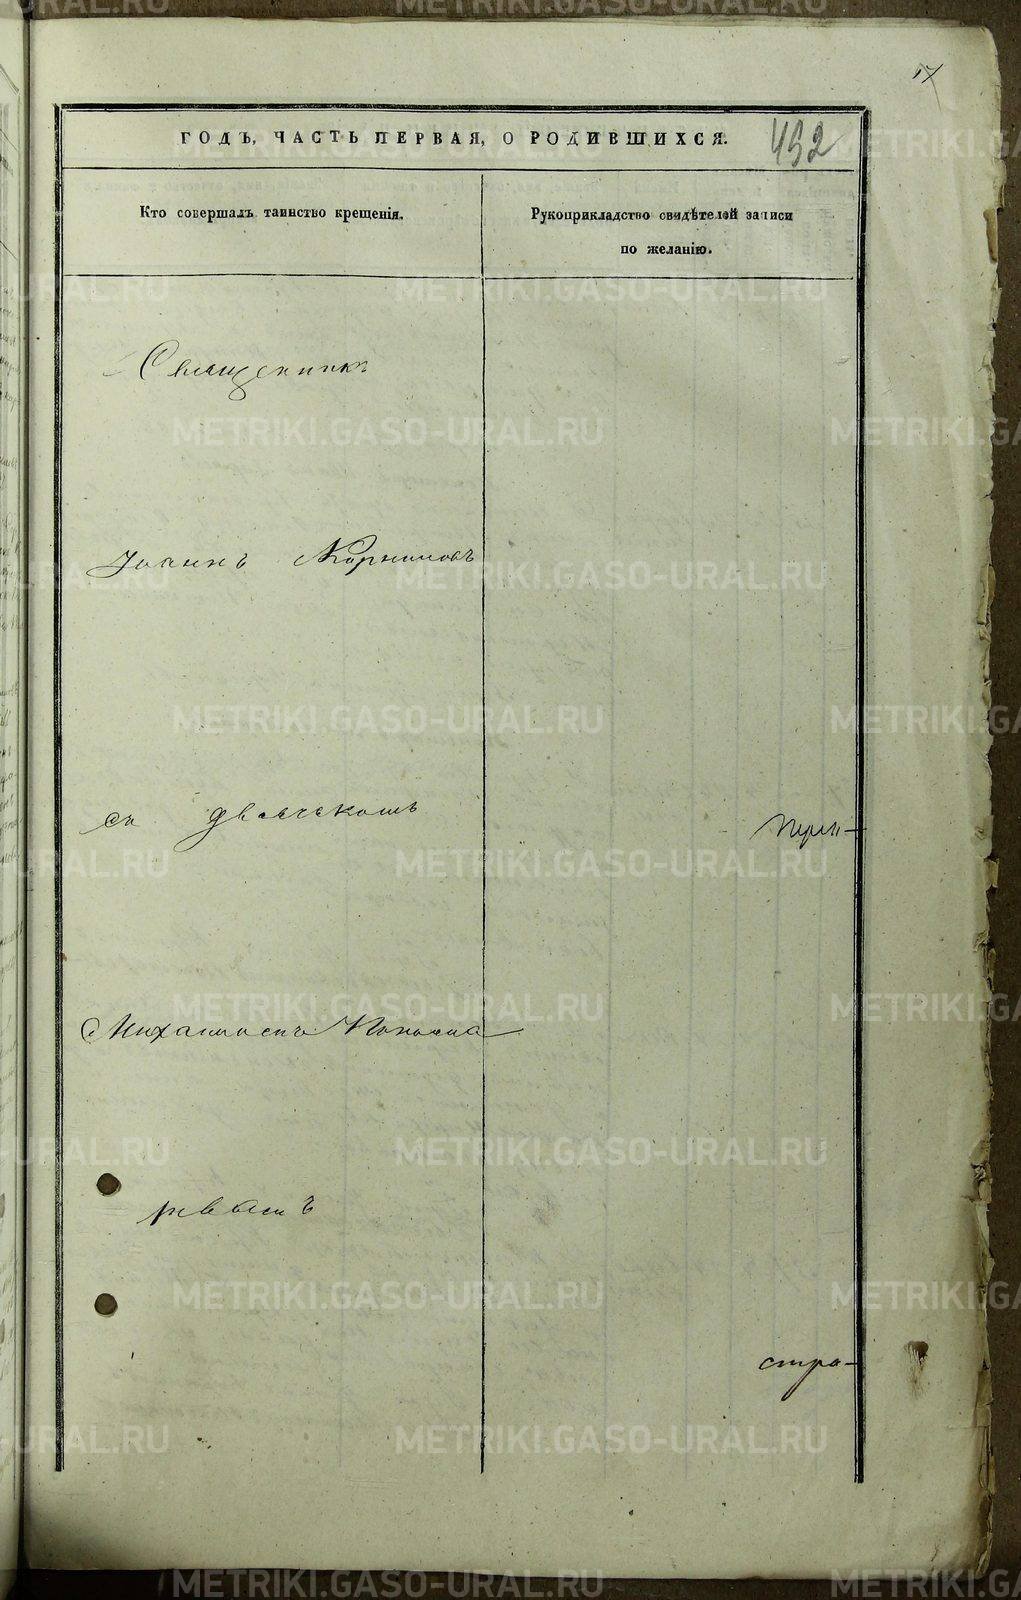 17
ГОДЪ, ЧАСТЬ ПЕРВАЯ, О РОДИВШИХСЯ. 492
Кто совершалъ таинство крещенія.
Рукоприкладство свидѣтелей записи
по желанію.
Священникъ
Іоаннъ Корниловъ
съ дьячкомъ
Михаиломъ Конома
ревымъ
стра-
METRIKI.GASO-URAL.RU